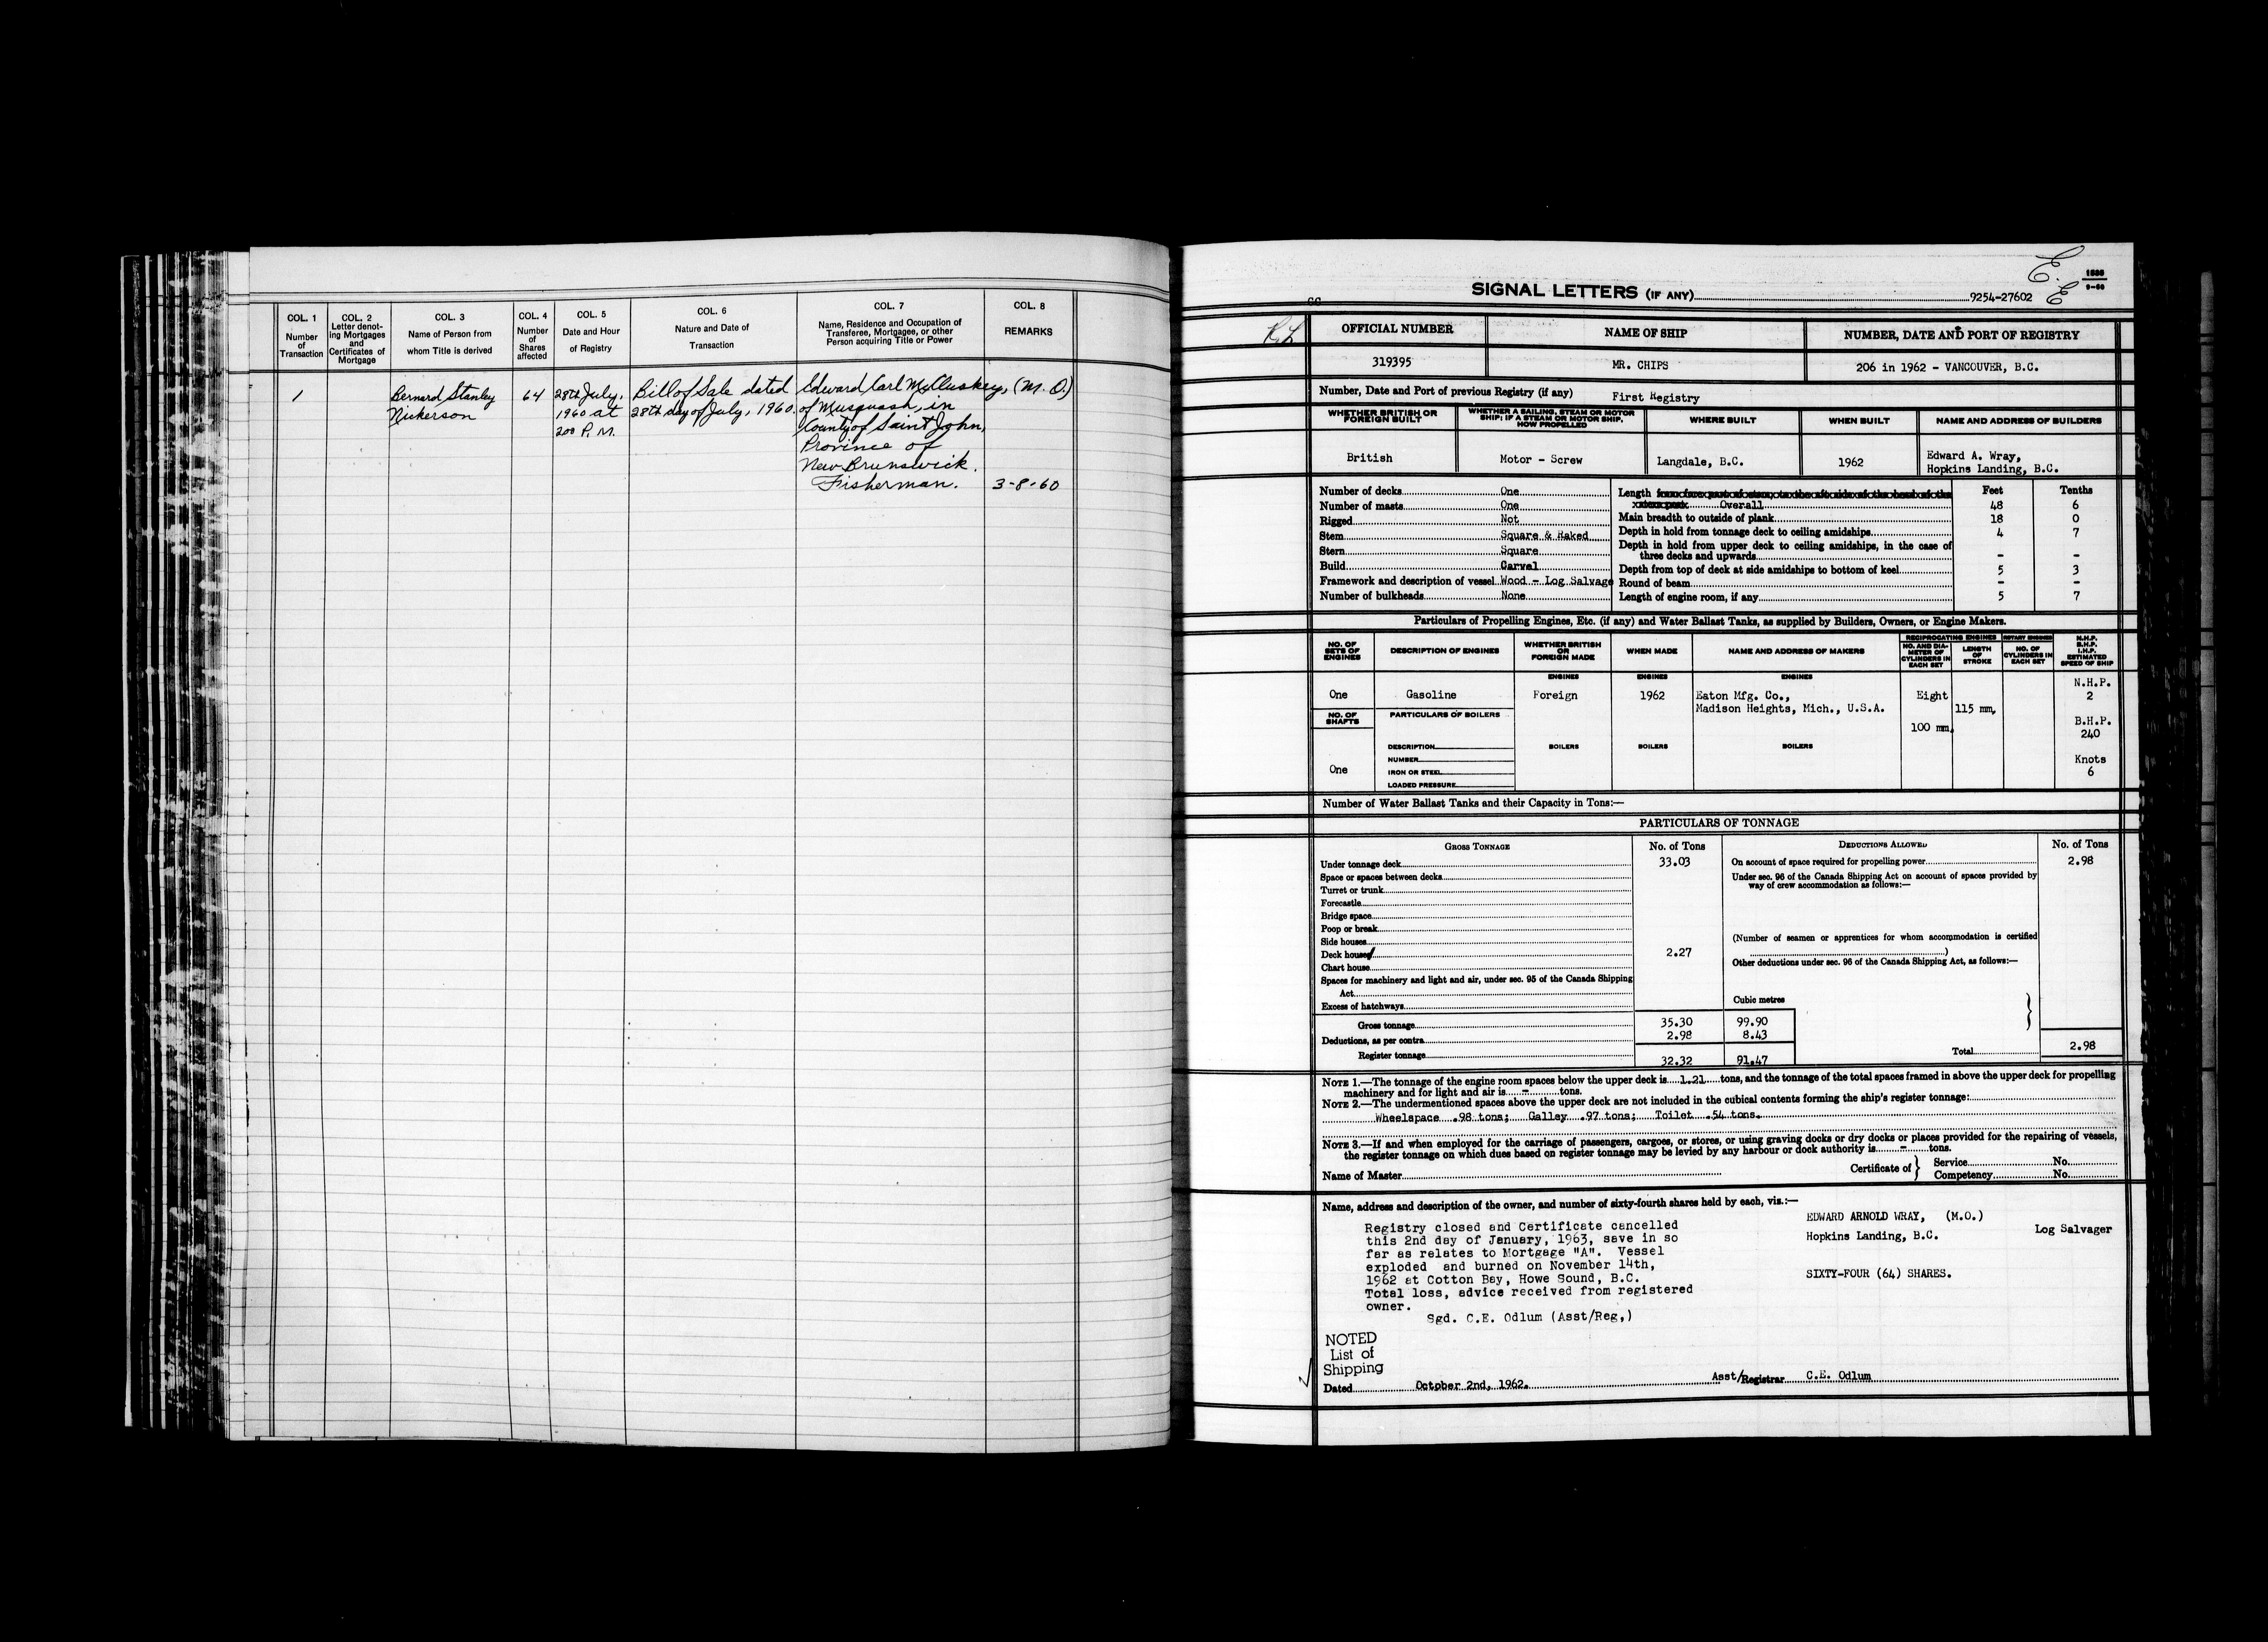 COL. 1
Number
of
Transaction
COL. 2
Letter denot-
ing Mortgages
and
Certificates of
Mortgage
COL. 3
Name of Person from
whom Title is derived
COL. 4
Number
of
Shares
affected
COL. 5
Date and Hour
of Registry
COL. 6
Nature and Date of
Transaction
COL. 7
Name, Residence and Occupation of
Transferee, Mortgagee, or other
Person acquiring Title or Power
COL. 8
REMARKS
1
Bernard Stanley
Nickerson
64
28th July,
1960 at
2 00 P. M.
Bill of Sale dated
28th day of July, 1960.
Edward Carl McCluskey, (M. O.)
of Musquash, in
County of Saint John,
Province of
New Brunswick.
Fisherman.
3-8-60
SIGNAL LETTERS (IF ANY) 9254-27602
E.
E
OFFICIAL NUMBER
NAME OF SHIP
NUMBER, DATE AND PORT OF REGISTRY
319395
MR. CHIPS
206 in 1962 - VANCOUVER, B.C.
Number, Date and Port of previous Registry (if any) First Registry
WHETHER BRITISH OR
FOREIGN BUILT
WHETHER A SAILING, STEAM OR MOTOR
SHIP; IF A STEAM OR MOTOR SHIP,
HOW PROPELLED
WHERE BUILT
WHEN BUILT
NAME AND ADDRESS OF BUILDERS
British
Motor - Screw
Langdale, B.C.
1962
Edward A. Wray,
Hopkins Landing, B.C.
Number of decks One
Number of masts One
Rigged Not
Stem Square & Raked
Stern Square
Build Carvel
Framework and description of vessel Wood - Log Salvage
Number of bulkheads None
Feet Tenths
Length Overall 48 6
Main breadth to outside of plank 18 0
Depth in hold from tonnage deck to ceiling amidships 4 7
Depth in hold from upper deck to ceiling amidships, in the case of
three decks and upwards - -
Depth from top of deck at side amidships to bottom of keel 5 3
Round of beam - -
Length of engine room, if any 5 7
Particulars of Propelling Engines, Etc. (if any) and Water Ballast Tanks, as supplied by Builders, Owners, or Engine Makers.
NO. OF
SETS OF
ENGINES
DESCRIPTION OF ENGINES
WHETHER BRITISH
OR
FOREIGN MADE
WHEN MADE
NAME AND ADDRESS OF MAKERS
RECIPROCATING ENGINES
NO. AND DIA-
METER OF
CYLINDERS IN
EACH SET
LENGTH
OF
STROKE
ROTARY ENGINES
NO. OF
CYLINDERS IN
EACH SET
N.H.P.
B.H.P.
I.H.P.
ESTIMATED
SPEED OF SHIP
ENGINES
ENGINES
ENGINES
One
Gasoline
Foreign
1962
Eaton Mfg. Co.,
Madison Heights, Mich., U.S.A.
Eight
100 mm.
115 mm.
N.H.P.
2
B.H.P.
240
Knots
6
NO. OF
SHAFTS
One
PARTICULARS OF BOILERS
DESCRIPTION
NUMBER
IRON OR STEEL
LOADED PRESSURE
BOILERS
BOILERS
BOILERS
Number of Water Ballast Tanks and their Capacity in Tons:—
PARTICULARS OF TONNAGE
GROSS TONNAGE
No. of Tons
Under tonnage deck 33.03
Space or spaces between decks
Turret or trunk
Forecastle
Bridge space
Poop or break
Side houses
Deck house 2.27
Chart house
Spaces for machinery and light and air, under sec. 95 of the Canada Shipping
Act
Excess of hatchways
Cubic metres
Gross tonnage 35.30 99.90
Deductions, as per contra 2.98 8.43
Register tonnage 32.32 91.47
DEDUCTIONS ALLOWED
No. of Tons
On account of space required for propelling power 2.98
Under sec. 96 of the Canada Shipping Act on account of spaces provided by
way of crew accommodation as follows:—
(Number of seamen or apprentices for whom accommodation is certified
)
Other deductions under sec. 96 of the Canada Shipping Act, as follows:—
Total 2.98
NOTE 1.—The tonnage of the engine room spaces below the upper deck is 1.21 tons, and the tonnage of the total spaces framed in above the upper deck for propelling
machinery and for light and air is - tons.
NOTE 2.—The undermentioned spaces above the upper deck are not included in the cubical contents forming the ship's register tonnage:
Wheelspace .98 tons; Galley .97 tons; Toilet .54 tons.
NOTE 3.—If and when employed for the carriage of passengers, cargoes, or stores, or using graving docks or dry docks or places provided for the repairing of vessels,
the register tonnage on which dues based on register tonnage may be levied by any harbour or dock authority is - tons.
Name of Master
Certificate of
Service No.
Competency No.
Name, address and description of the owner, and number of sixty-fourth shares held by each, viz.:—
Registry closed and Certificate cancelled
this 2nd day of January, 1963, save in so
far as relates to Mortgage "A". Vessel
exploded and burned on November 14th,
1962 at Cotton Bay, Howe Sound, B.C.
Total loss, advice received from registered
owner.
Sgd. C.E. Odlum (Asst/Reg,)
EDWARD ARNOLD WRAY, (M.O.)
Hopkins Landing, B.C.
Log Salvager
SIXTY-FOUR (64) SHARES.
NOTED
List of
Shipping
Dated October 2nd, 1962. Asst/Registrar C.E. Odlum